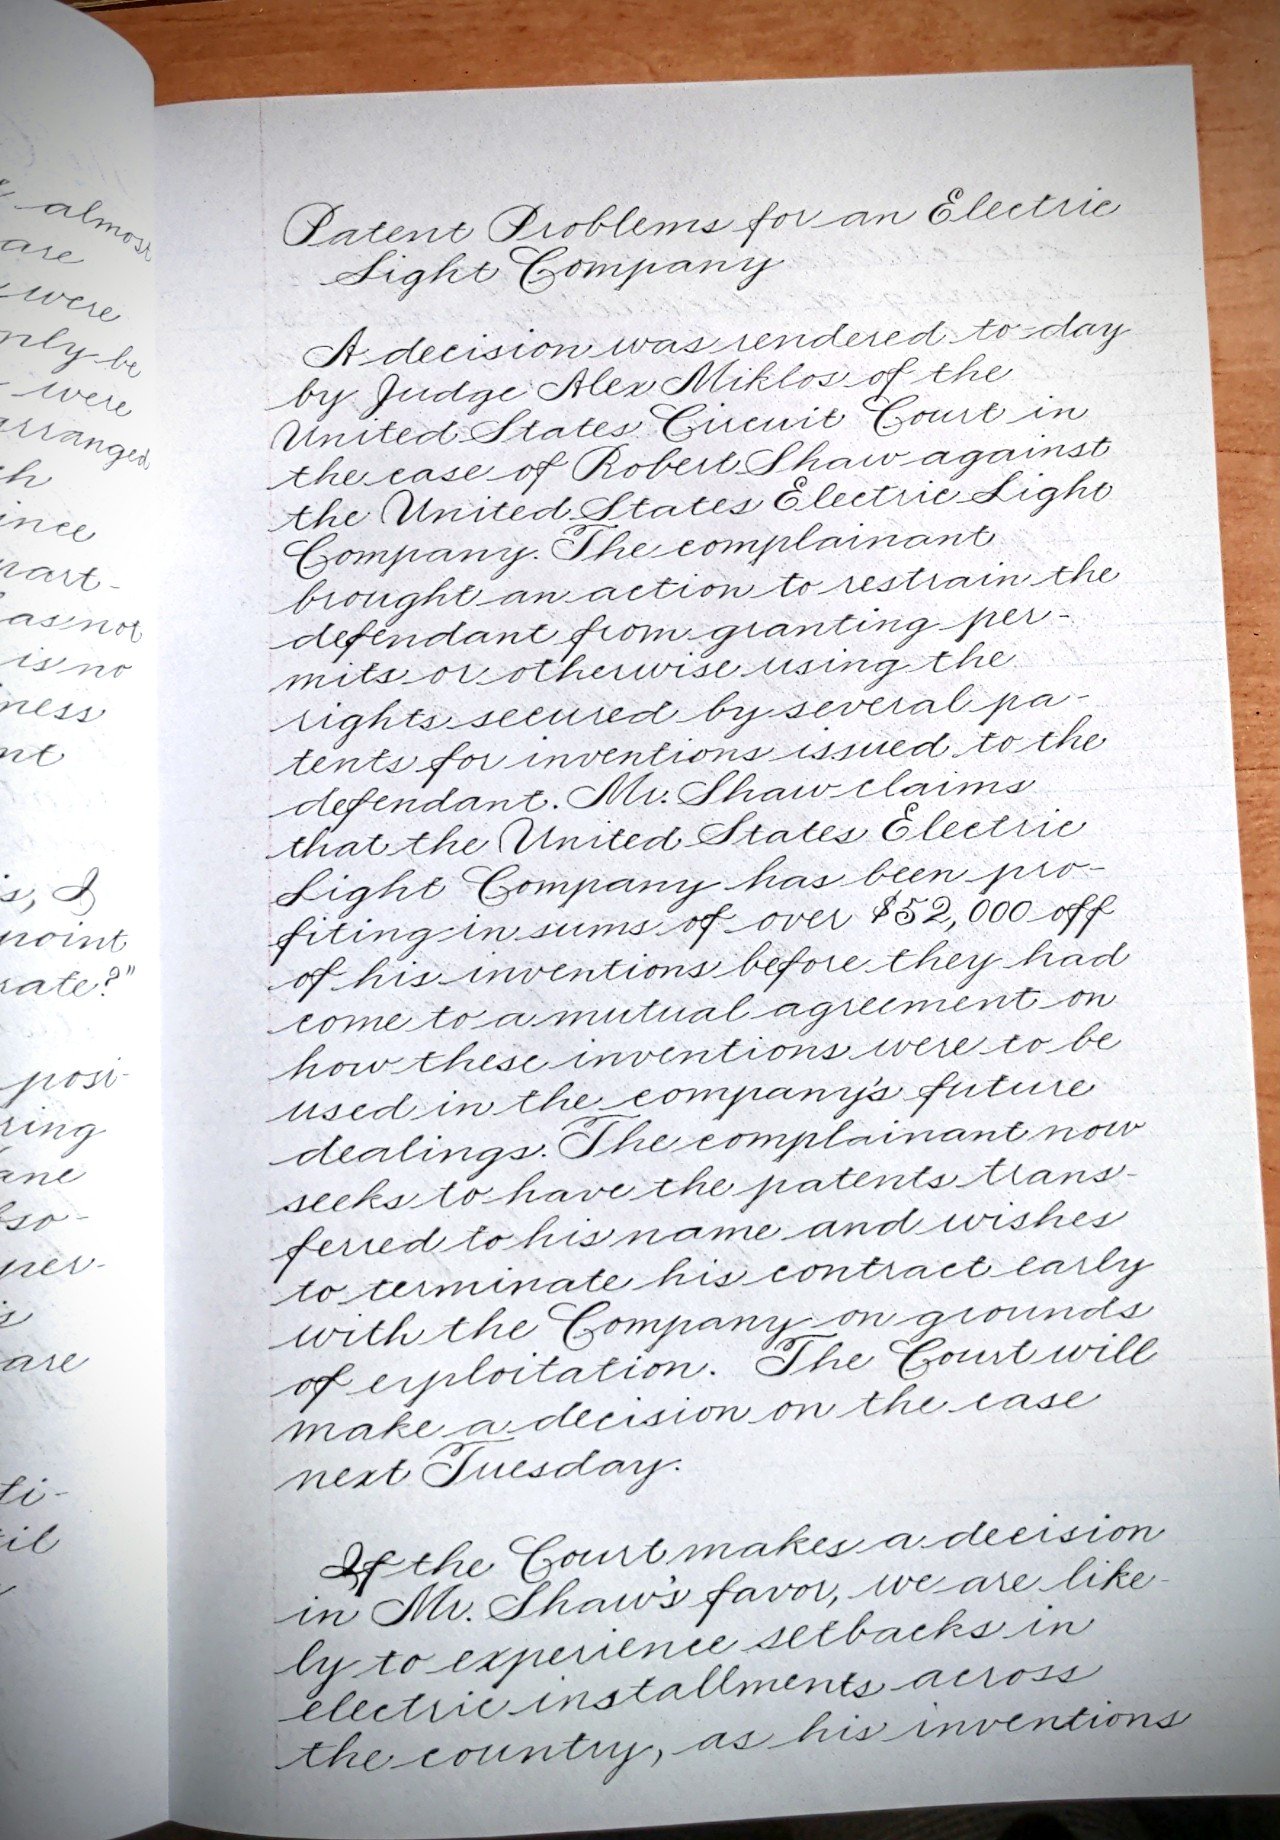 almost
are
were
be
were
arranged
ince
part-
as not
is no
ness
nt
is, I
point
rate?"
posi-
ring
ane
so-
per-
are
ti-
il
Patent Problems for an Electric
Light Company
A decision was rendered to-day
by Judge Alex Miklos of the
United States Circuit Court in
the case of Robert Shaw against
the United States Electric Light
Company. The complainant
brought an action to restrain the
defendant from granting per-
mits or otherwise using the
rights secured by several pa-
tents for inventions issued to the
defendant. Mr. Shaw claims
that the United States Electric
Light Company has been pro-
fiting in sums of over $52,000 off
of his inventions before they had
come to a mutual agreement on
how these inventions were to be
used in the company's future
dealings. The complainant now
seeks to have the patents trans-
ferred to his name and wishes
to terminate his contract early
with the Company on grounds
of exploitation. The Court will
make a decision on the case
next Tuesday.
If the Court makes a decision
in Mr. Shaw's favor, we are like-
ly to experience setbacks in
electric installments across
the country, as his inventions